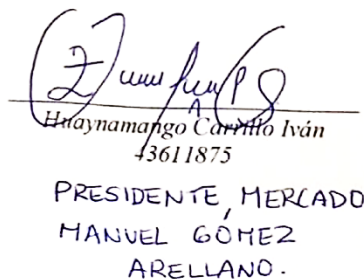 Huaynamango Carrillo Iván
43611875
PRESIDENTE, MERCADO
MANUEL GÓMEZ
ARELLANO.